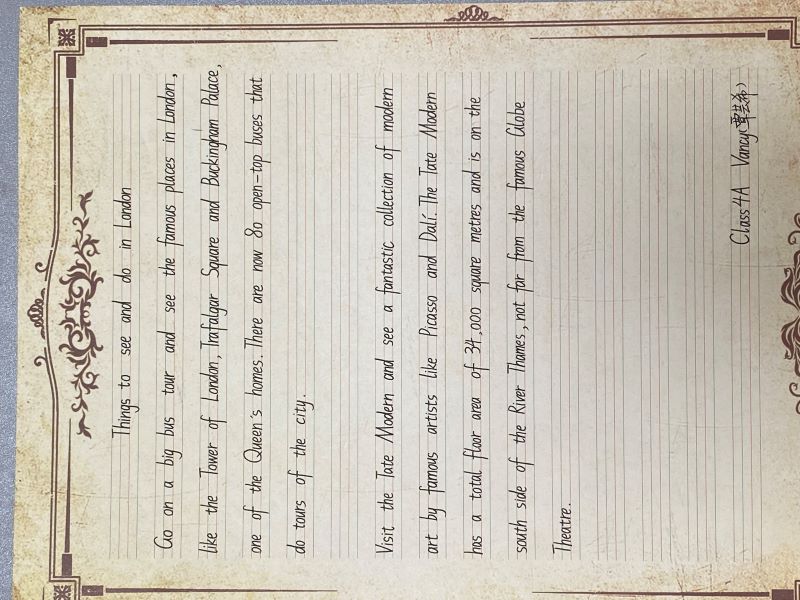 Things to see and do in London
Go on a big bus tour and see the famous places in London,
like the Tower of London, Trafalgar Square and Buckingham Palace,
one of the Queen's homes. There are now 80 open-top buses that
do tours of the city.
Visit the Tate Modern and see a fantastic collection of modern
art by famous artists like Picasso and Dalí. The Tate Modern
has a total floor area of 34,000 square metres and is on the
south side of the River Thames, not far from the famous Globe
Theatre.
Class 4A Vancy(覃芸希)